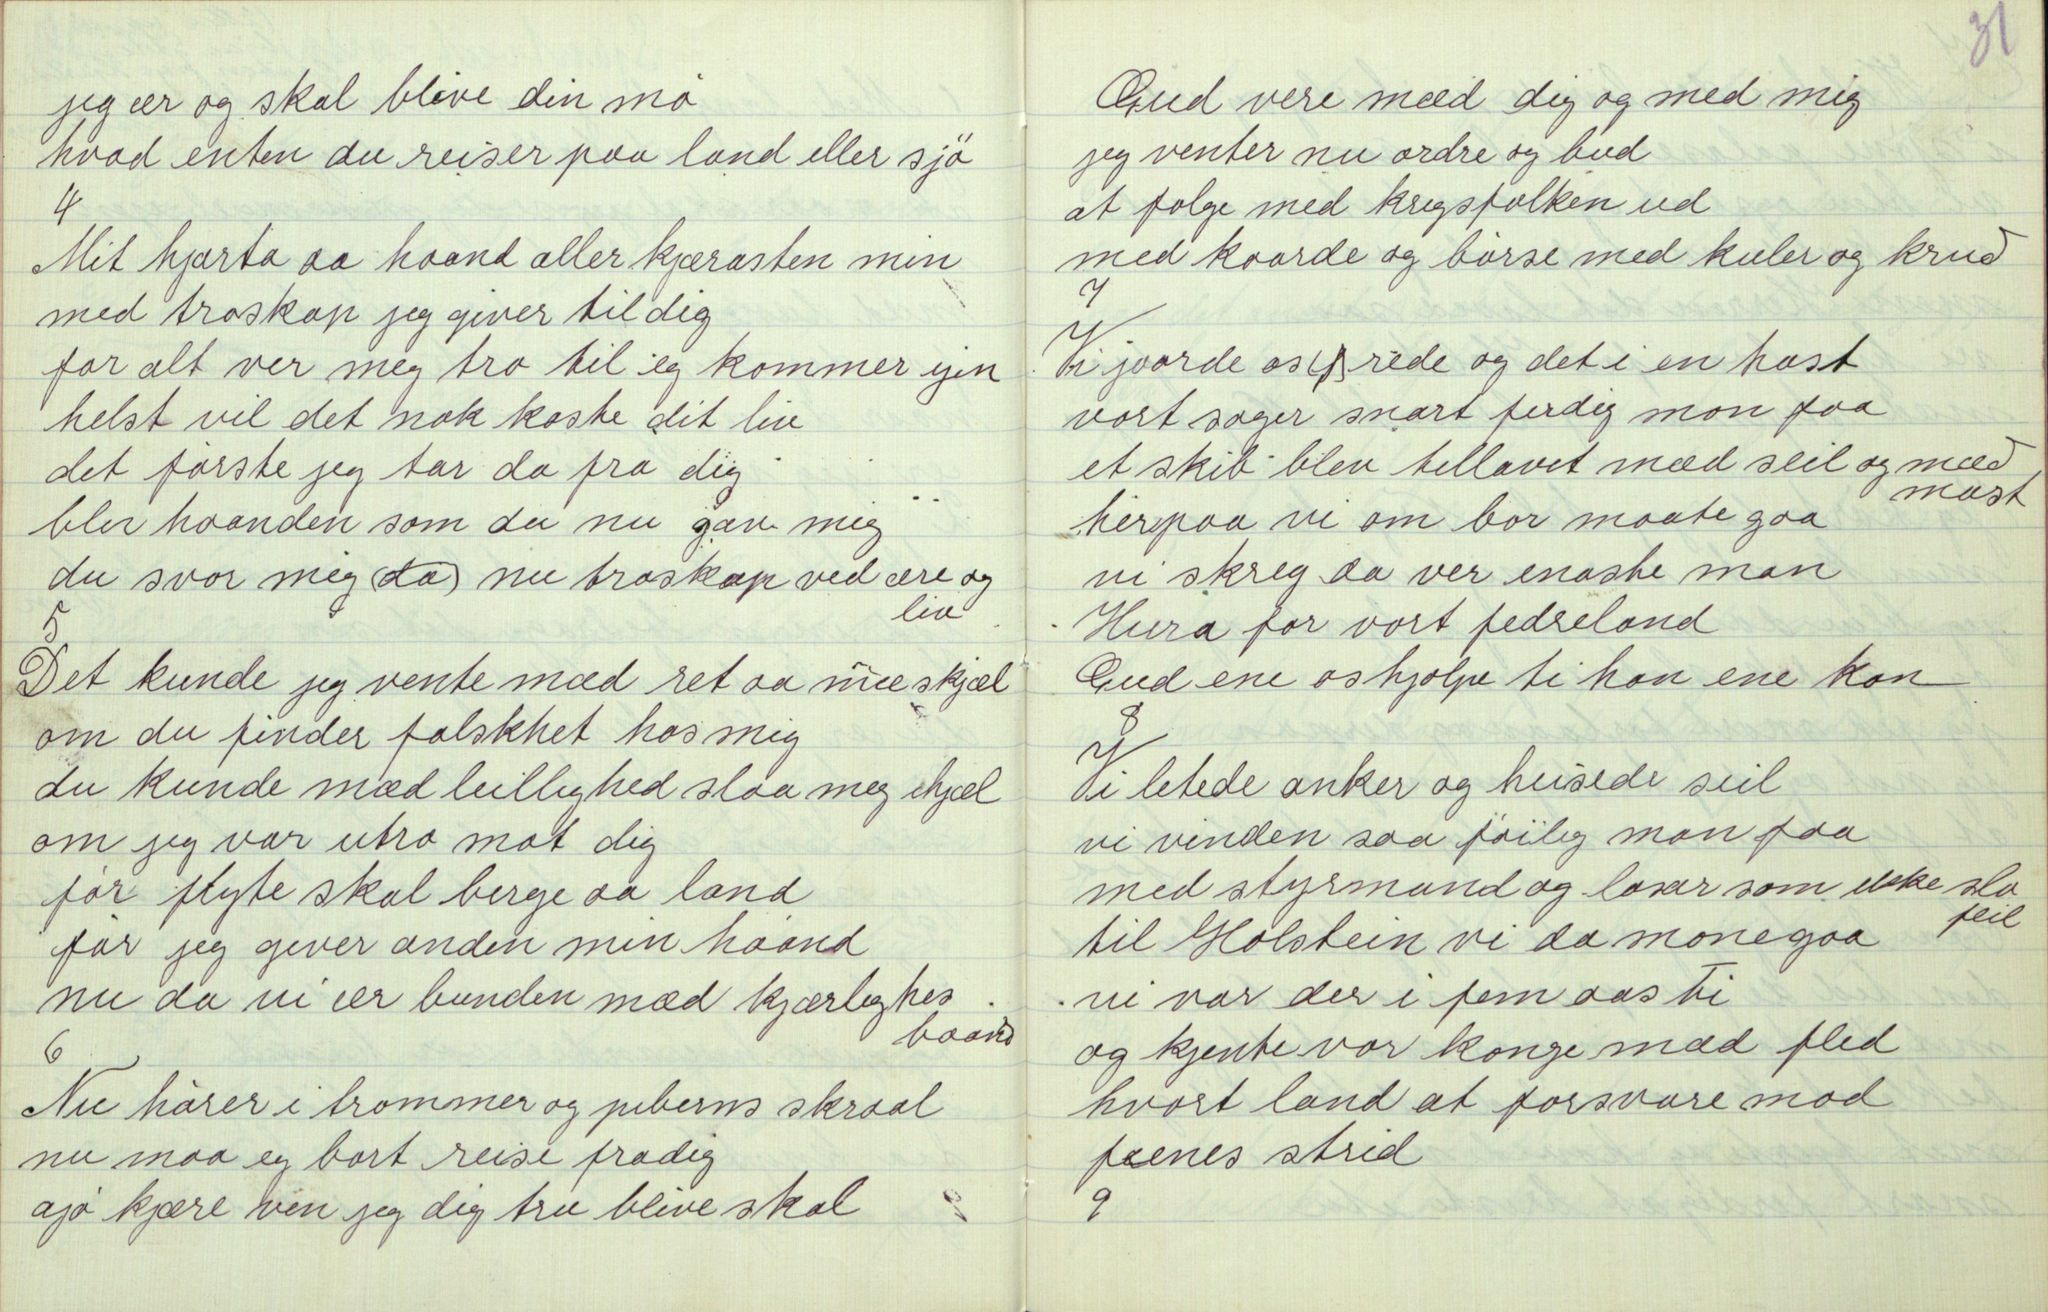 jeg ær og skal blive din mø
hvad enten du reiser paa land eller sjö
4
Mit hjærta aa haand aller kjærasten min
med troskap jeg giver til dig
for alt ver meg tro til eg kommer ijen
helst vil det nok koste dit liv
det første jeg tar da fra dig
blir haanden som du nu gav mig
du svor mig (da) nu troskap ved ære og
liv
5
Det kunde jeg vente mæd ret aa mæ skjæl
om du finder falskhet hos mig
du kunde mæd leillighed slaa meg ihjæl
om jeg var utro mot dig
før flyte skal berge aa land
før jeg giver anden min haand
nu da vi ær bunden mæd kjærlighes
baand
6
Nu hører i trommer og piberns skraal
nu maa eg bort reise fradig
ajø kjære ven jeg dig tru blive skal
31
Gud vere mæd dig og med mig
jeg venter nu ordre og bud
at følge med krigsfolken ud
med kaarde og børse med kuler og krud
7
Vi jvorde os rede og det i en hast
vort sager snart ferdig mon faa
et skib blev tillavet mæd seil og mæd
mast
herpaa vi om bor maate gaa
vi skreg da ver enaste man
Hura for vort fedreland
Gud ene os hjølpe ti han ene kan
8
Vi letede anker og heisede seil
vi vinden saa föilig mon faa
med styrmand og losær som ikke sla
feil
til Holstein vi da monegaa
vi var der i fem aas ti
og kjente vor konge mæd flid
hvort land at forsvare mod
feenes strid
9